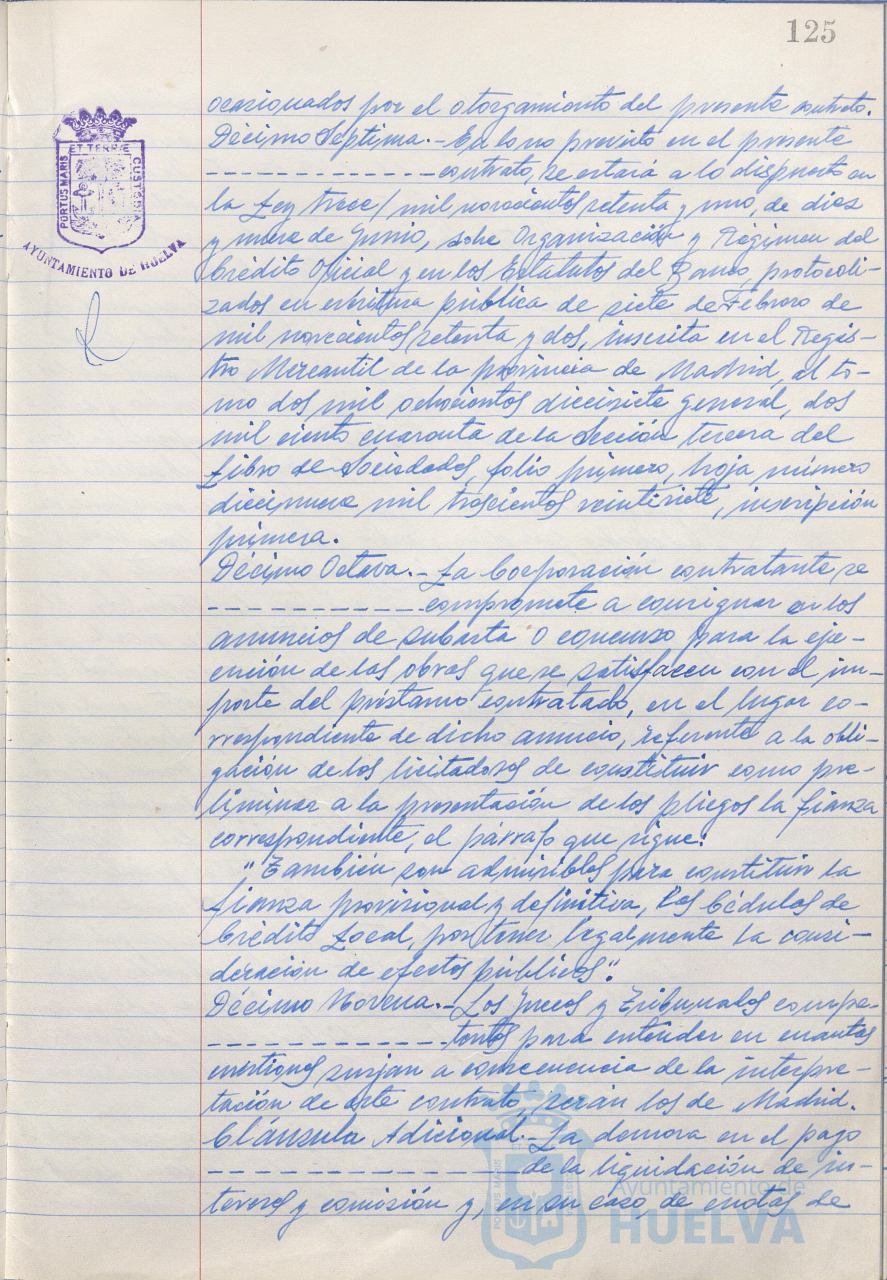 125
ET TERRÆ
PORTUS MARIS
CUSTODIA
AYUNTAMIENTO DE HUELVA
ocasionados por el otorgamiento del presente contrato.
Décimo Septima.- En lo no previsto en el presente
------------- contrato, se estará a lo dispuesto en
la Ley trece/ mil novecientos setenta y uno, de diez
y nueve de Junio, sobre Organización y Régimen del
Crédito Oficial y en los Estatutos del Banco, protocoli-
zados en escritura pública de siete de Febrero de
mil novecientos setenta y dos, inscrita en el Regis-
tro Mercantil de la provincia de Madrid, al to-
mo dos mil ochocientos diecisiete general, dos
mil ciento cuarenta de la Sección tercera del
Libro de Sociedades, folio primero, hoja número
diecinueve mil trescientos veintisiete, inscripción
primera.
Décimo Octava.- La Corporación contratante se
------------ compromete a consignar en los
anuncios de subasta o concurso para la eje-
cución de las obras que se satisfacen con el im-
porte del préstamo contratado, en el lugar co-
rrespondiente de dicho anuncio, referente a la obli-
gación de los licitadores de constituir como pre-
liminar a la presentación de los pliegos la fianza
correspondiente, el párrafo que sigue:
"También son admisibles para constituir la
fianza provisional y definitiva, las Cédulas de
Crédito Local, por tener legalmente la consi-
deración de efectos públicos".
Décimo Novena.- Los Jueces y Tribunales compe-
------------- tentes para entender en cuantas
cuestiones surjan a consecuencia de la interpre-
tación de este contrato, serán los de Madrid.
Cláusula Adicional.- La demora en el pago
----------------- de la liquidación de in-
tereses y comisión y, en su caso, de cuotas de
PORTUS MARIS
Ayuntamiento de
HUELVA